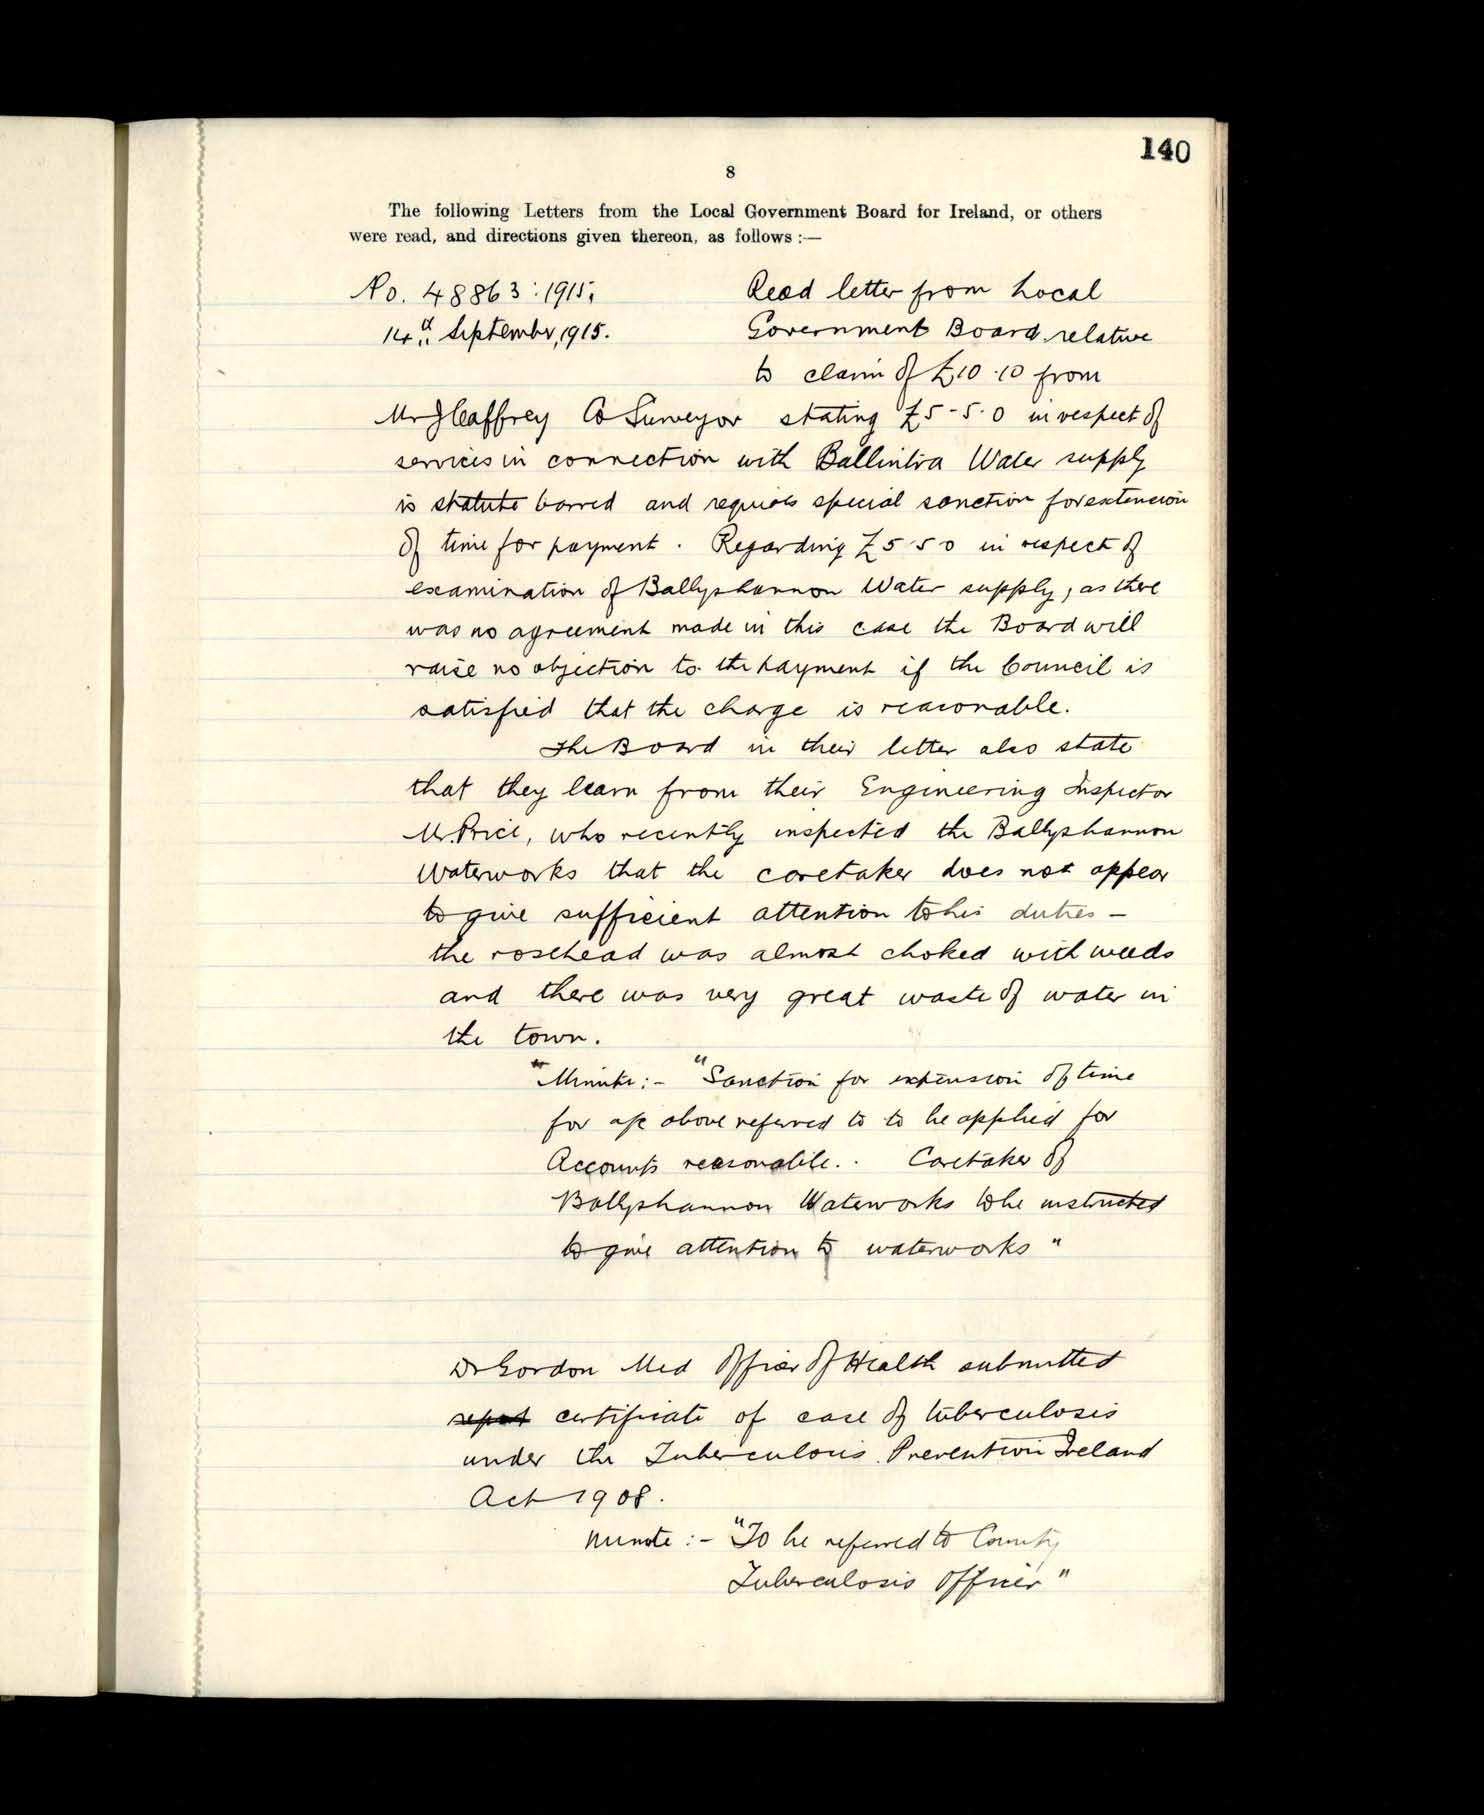 140
8
The following Letters from the Local Government Board for Ireland, or others
were read, and directions given thereon, as follows :—
No. 48863 : 1915.
14th September, 1915.
Read letter from Local
Government Board relative
to claim of £10.10 from
Mr J Caffrey Co Surveyor stating £5-5.0 in respect of
services in connection with Ballintra Water supply
is statute barred and requires special sanction for extension
of time for payment. Regarding £5 5 0 in respect of
examination of Ballyshannon Water supply, as there
was no agreement made in this case the Board will
raise no objection to the payment if the Council is
satisfied that the charge is reasonable.
The Board in their letter also state
that they learn from their Engineering Inspector
Mr. Price, who recently inspected the Ballyshannon
Waterworks that the caretaker does not appear
to give sufficient attention to his duties –
the rosehead was almost choked with weeds
and there was very great waste of water in
the town.
"Minute:- "Sanction for extension of time
for a/c above referred to to be applied for
Accounts reasonable.. Caretaker of
Ballyshannon Waterworks to be instructed
to give attention to waterworks"
Dr Gordon Med Officer of Health submitted
report certificate of case of tuberculosis
under the Tuberculosis Prevention Ireland
Act 1908.
Minute :- "To be referred to County
Tuberculosis Officer"